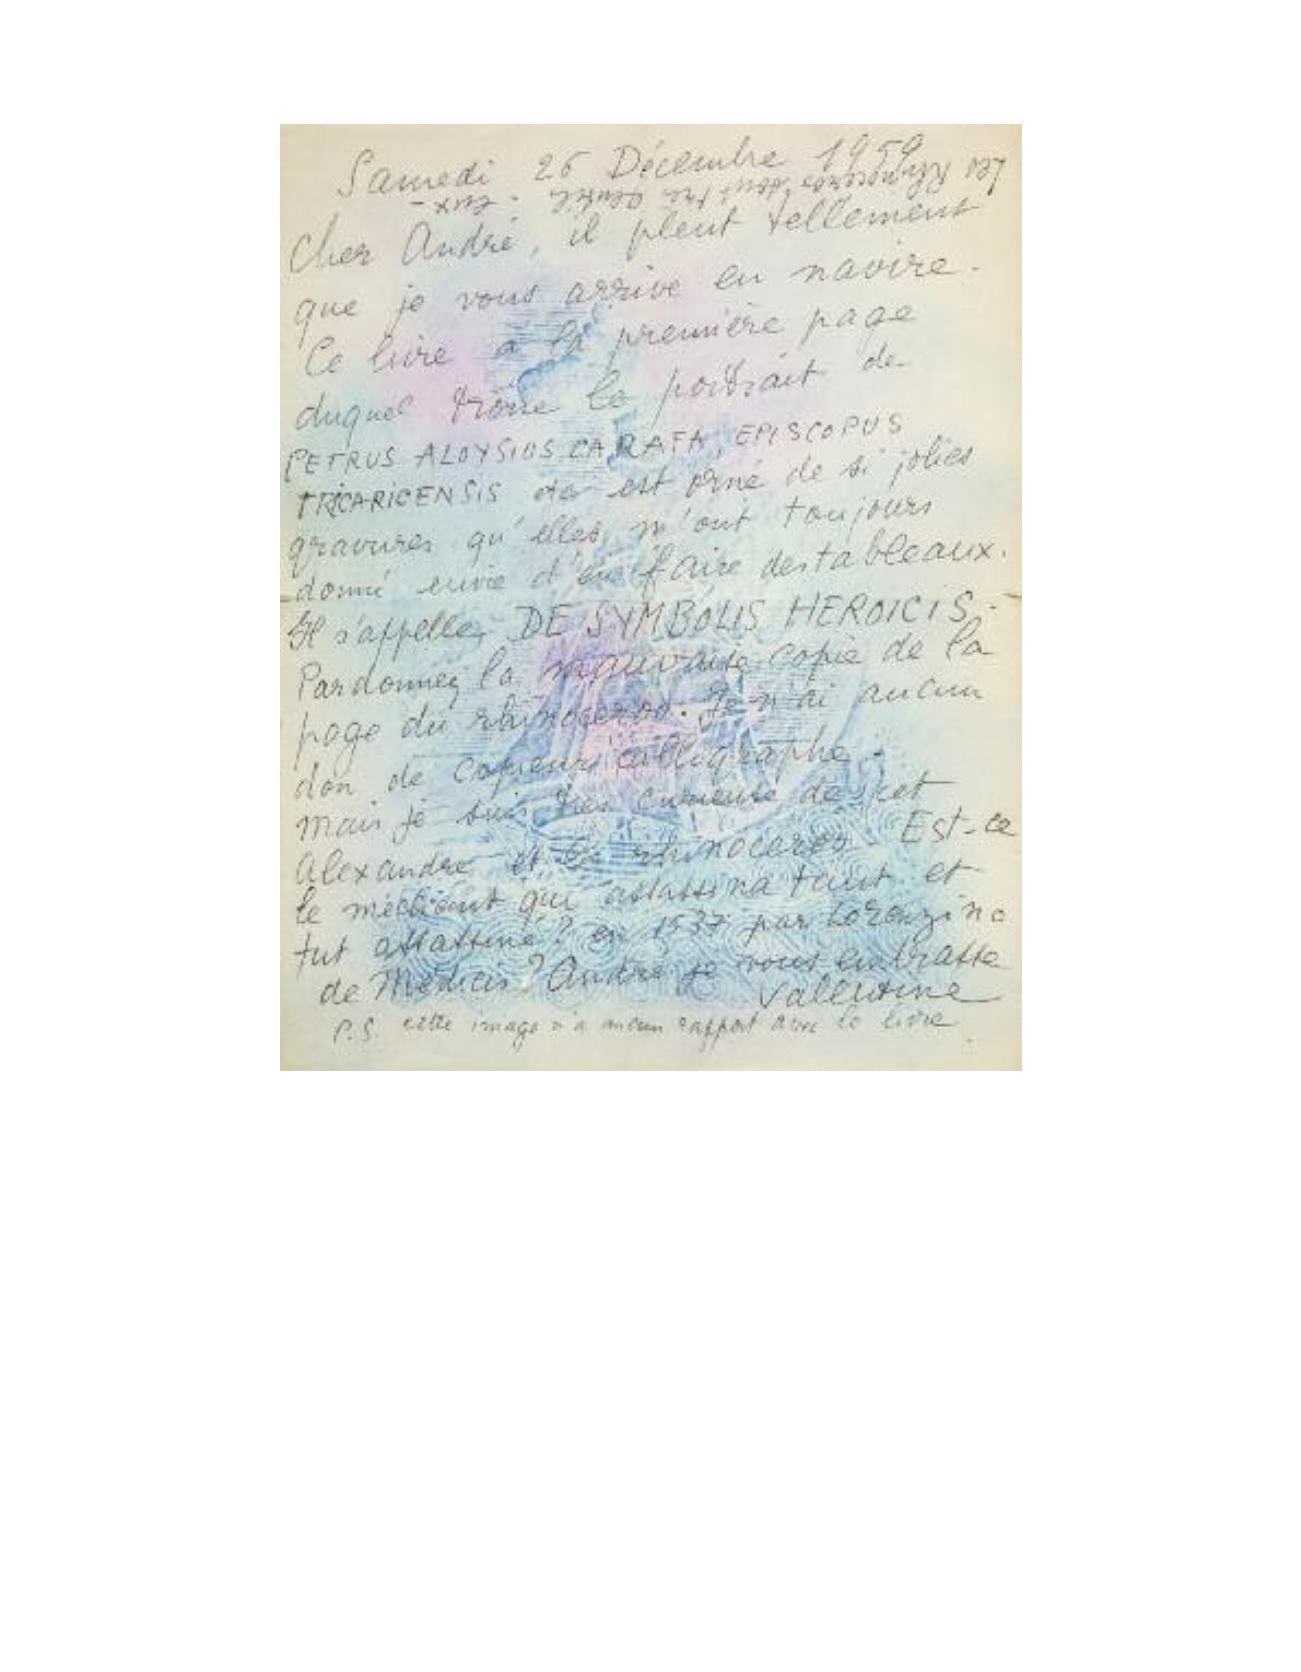 Samedi 26 Décembre 1959
cher André, il pleut tellement
que je vous arrive en navire.
Ce livre à la première page
duquel trône le portrait de
PETRUS ALOYSIUS CARAFA, EPISCOPUS
TRICARICENSIS etc est orné de si jolies
gravures qu'elles m'ont toujours
donné envie d'en faire des tableaux.
Il s'appelle DE SYMBOLIS HEROICIS.
Pardonnez la mauvaise copie de la
page du rhinoceros. Je n'ai aucun
don de copieur calligraphe.
mais je suis très curieuse de cet
Alexandre et le rhinoceros Est-ce
le méchant qui assassina tant et
fut assassiné? en 1537 par Lorenzino
de Médicis? André je vous embrasse
Valentine
P.S. cette image n'a aucun rapport avec le livre